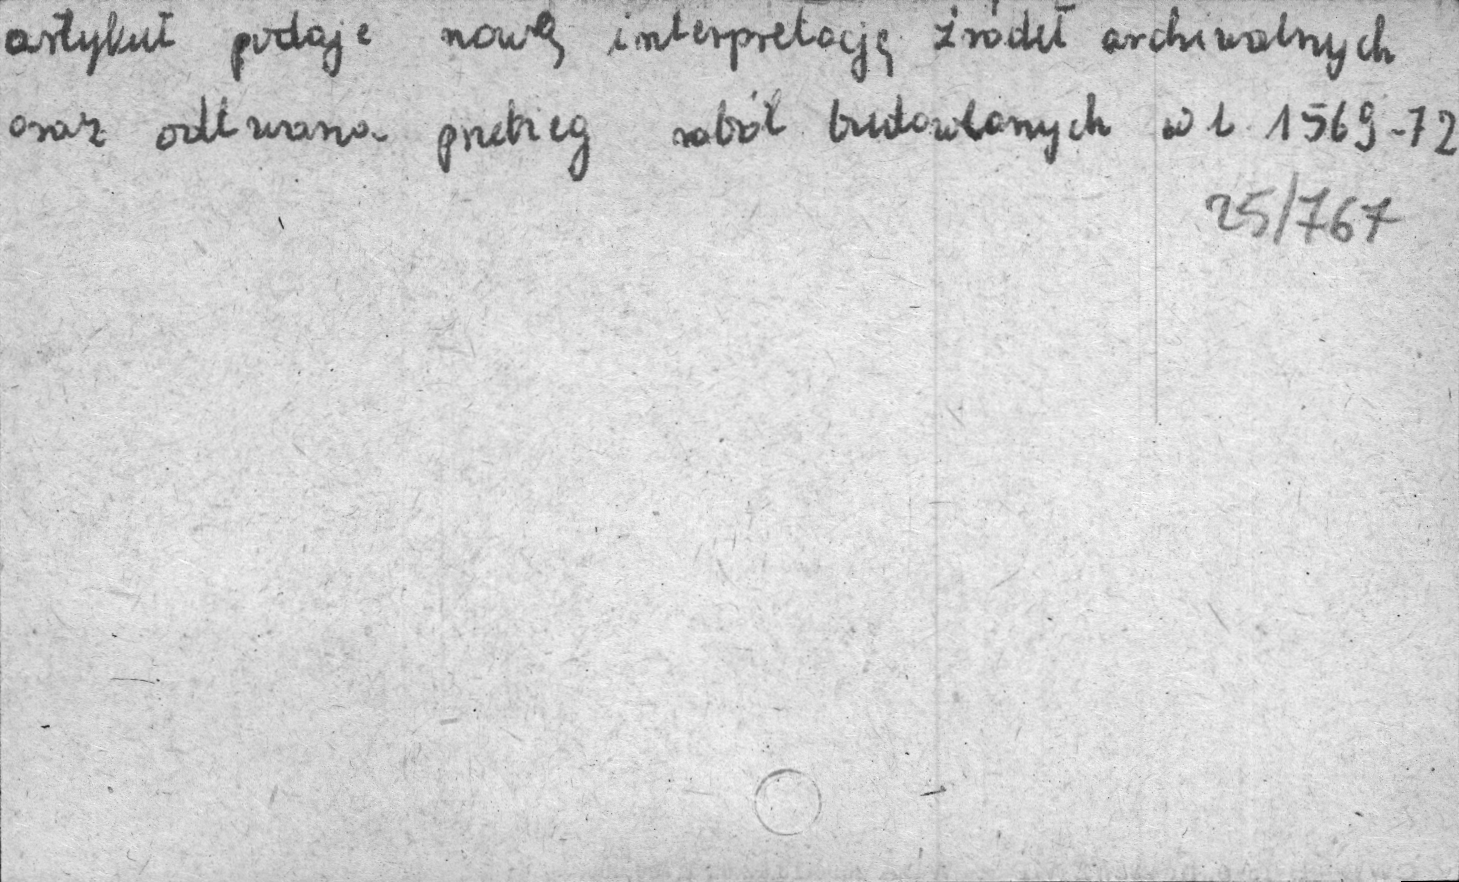 artykuł podaje nową interpretację źródeł archiwalnych
oraz odtwarza przebieg robót budowlanych w l. 1569-72
25/767